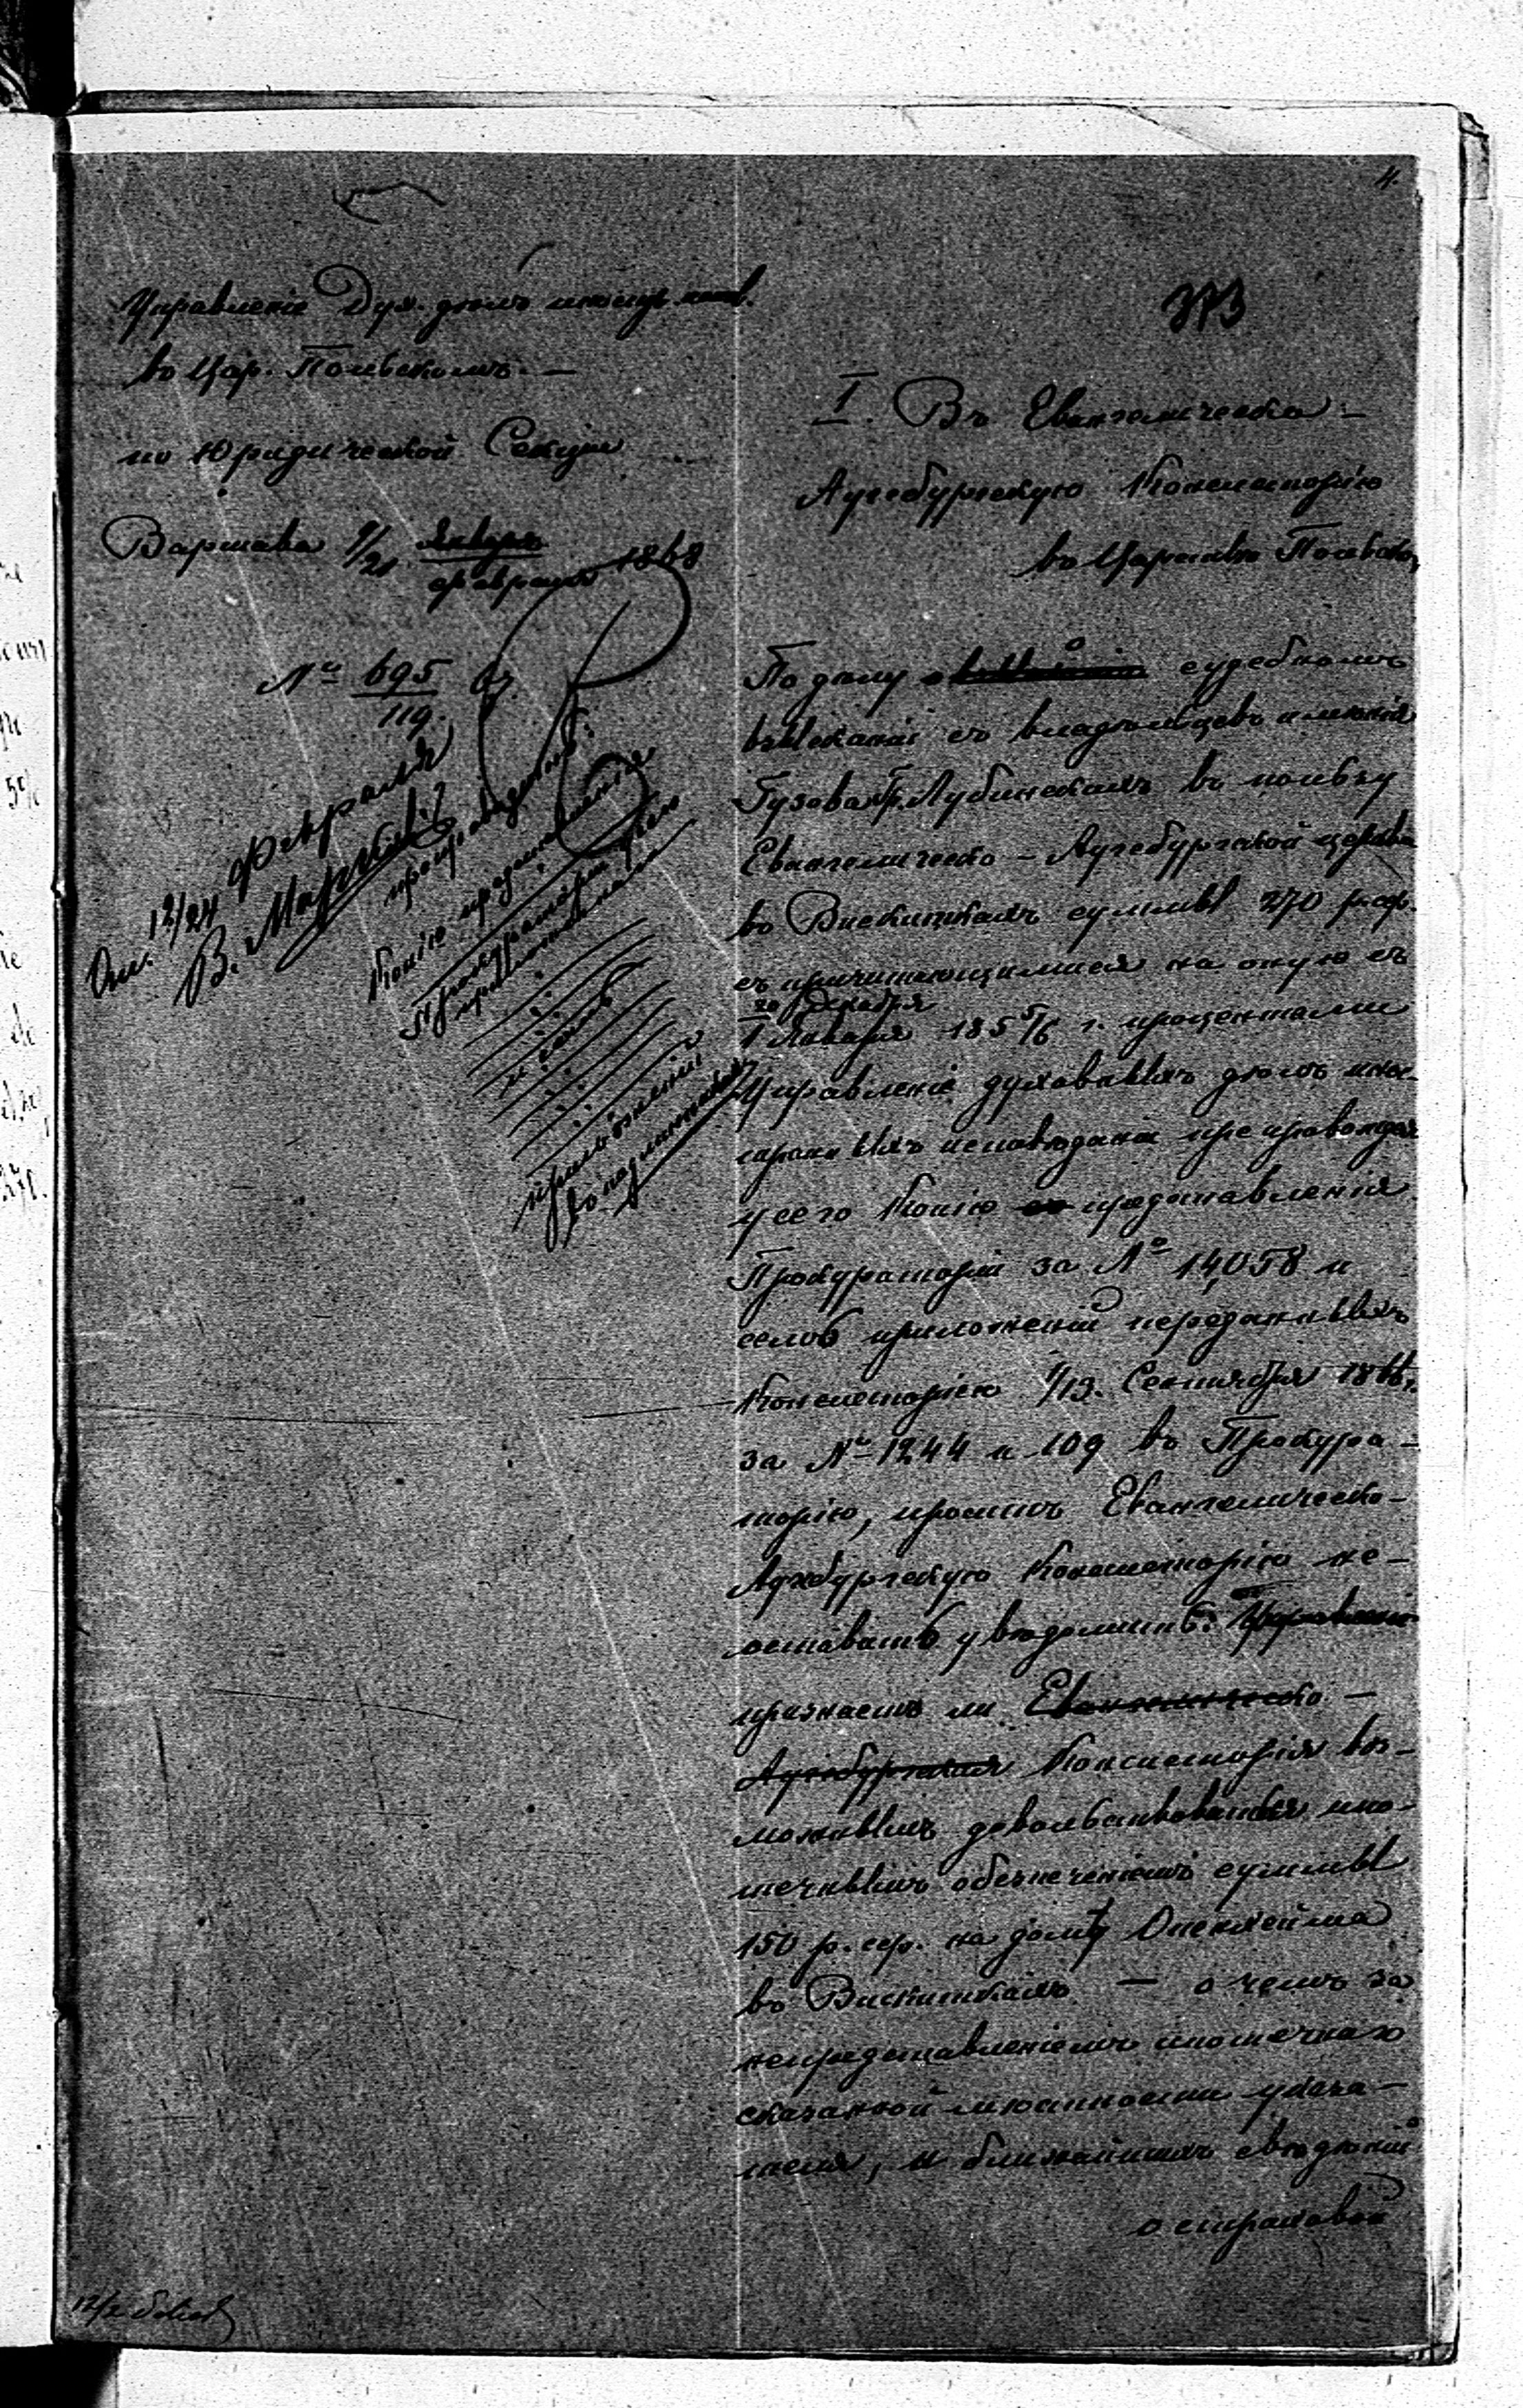 4.
373
Управленіе Дух. дѣлъ иностр. исп.
въ Цар. Польскомъ. —
по Юридической Секціи
Варшава 9/21 Января
Февраля 1868
№ 695
119.
От. 12/24 Февраля
В.
Копію представленія
Прокураторіи
приложеній
I. Въ Евангелическо-
Аугсбургскую Консисторію
въ Царствѣ Польском,
По дѣлу о судебномъ
взысканіи съ владѣльцевъ имѣнія
Гузова Гр. Лубинскихъ въ пользу
Евангелическо-Аугсбургской церкви
въ Вискиткахъ суммы 270 р. ср.
съ причитающимися на оную съ
20 Декабря
1 Января 185 5/6 г. процентами
Управленіе духовныхъ дѣлъ ино-
странныхъ исповѣданій препровождая
у сего Копію представленія
Прокураторіи за № 14,058 и
семь приложеній переданныхъ
Консисторіею 1/13. Сентября 1866 г.
за № 1244 и 109 въ Прокура-
торію, проситъ Евангелическо-
Аугсбургскую Консисторію не-
оставить увѣдомить: Управленіе
признаетъ ли Евангелическо-
Аугсбургская Консисторія воз-
можнымъ довольствоваться ипо-
течнымъ обезпеченіемъ суммы
150 р. сер. на дому Опенгейма
въ Вискиткахъ — о чемъ за
непредставленіемъ ипотечнаго
сказанной мѣстности указа-
теля, и ближайшихъ свѣдѣній
о страховой